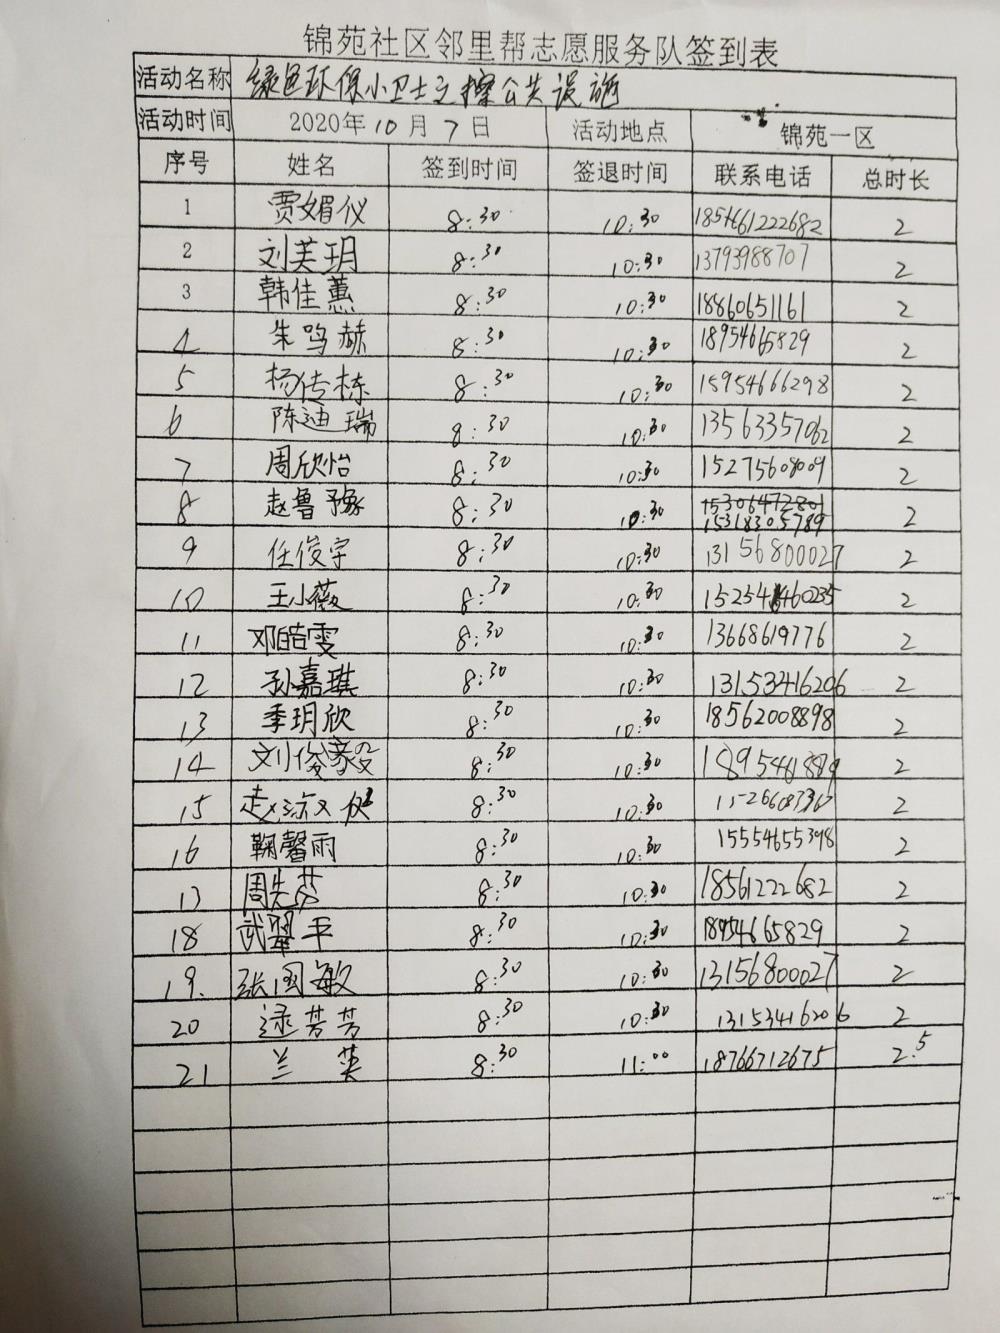 锦苑社区邻里帮志愿服务队签到表
活动名称 绿色环保小卫士之擦公共设施
活动时间 2020年10月7日 活动地点 锦苑一区
序号 姓名 签到时间 签退时间 联系电话 总时长
1 贾媚仪 8:30 10:30 1854661222682 2
2 刘芙玥 8:30 10:30 13793988707 2
3 韩佳蕙 8:30 10:30 18860651161 2
4 朱鸣赫 8:30 10:30 18954665829 2
5 杨传栋 8:30 10:30 15954666298 2
6 陈迪瑞 8:30 10:30 13563357062 2
7 周欣怡 8:30 10:30 15275608009 2
8 赵鲁豫 8:30 10:30 15306472801 2
15318305789
9 任俊宇 8:30 10:30 13156800027 2
10 王小薇 8:30 10:30 2
11 邓皓雯 8:30 10:30 13668619776 2
12 孙嘉琪 8:30 10:30 13153416206 2
13 季玥欣 8:30 10:30 18562008898 2
14 刘俊毅 8:30 10:30 2
15 8:30 10:30 2
16 鞠馨雨 8:30 10:30 15554655398 2
17 周先芬 8:30 10:30 18561222682 2
18 武翠平 8:30 10:30 18954665829 2
19. 张国敏 8:30 10:30 13156800027 2
20 逯芳芳 8:30 10:30 13153416206 2
21 兰英 8:30 11:00 18766712675 2.5